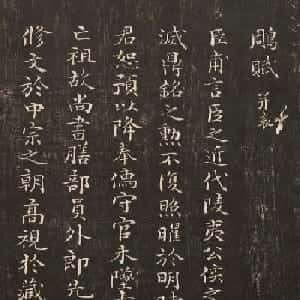 鵰賦 并表
臣甫言臣之近代陵夷公侯之
滅鼎銘之勳不復照曜於明時
君恕預以降奉儒守官未墜
亡祖故尚書膳部員外郎先
修文於中宗之朝高視於藏